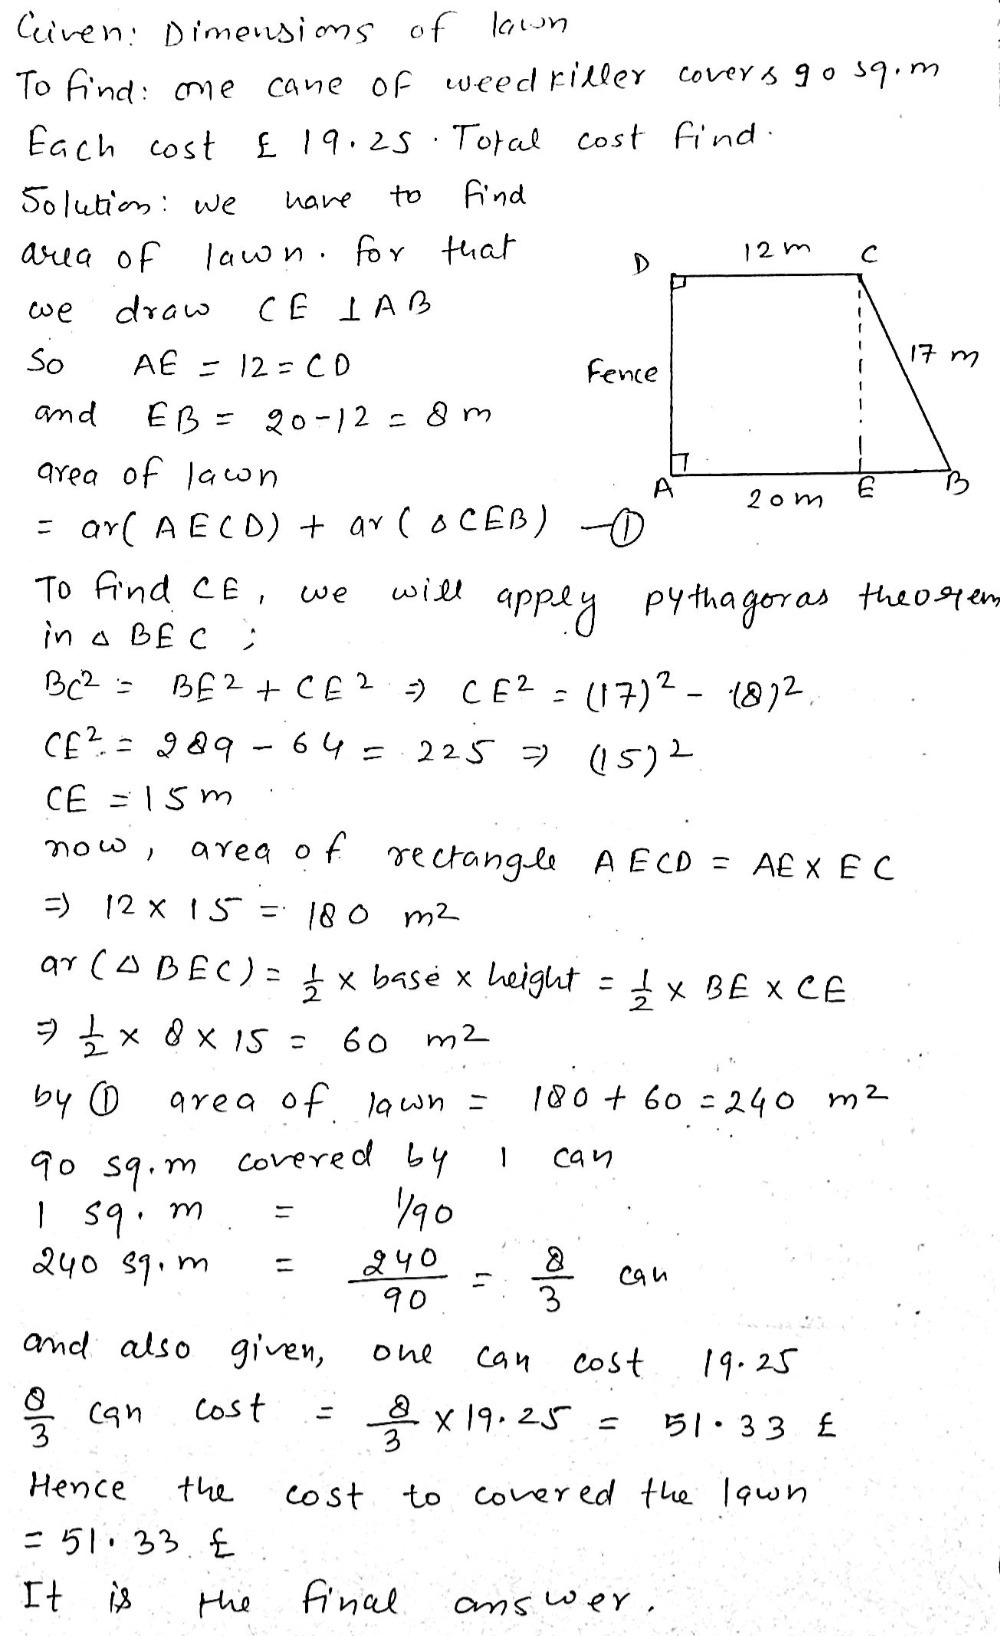 Given: Dimensions of lawn
To find: one cane of weedkiller covers 90 sq.m
Each cost £ 19.25. Total cost find.
Solution: we have to find
area of lawn. for that
we draw CE ⊥ AB
So AE = 12 = CD
and EB = 20-12 = 8 m
area of lawn
= ar(AECD) + ar(△CEB) —①
D 12 m C
Fence
17 m
A 20 m E B
To find CE, we will apply pythagoras theorem
in △ BEC ;
BC² = BE² + CE² ⇒ CE² = (17)² - (8)².
CE² = 289 - 64 = 225 ⇒ (15)²
CE = 15 m
now, area of rectangle AECD = AE X EC
⇒ 12 x 15 = 180 m²
ar (△ BEC) = 1/2 x base x height = 1/2 x BE x CE
⇒ 1/2 x 8 x 15 = 60 m²
by ① area of lawn = 180 + 60 = 240 m²
90 sq.m covered by 1 can
1 sq. m = 1/90
240 sq.m = 240/90 = 8/3 can
and also given, one can cost 19.25
8/3 can cost = 8/3 x 19.25 = 51.33 £
Hence the cost to covered the lawn
= 51.33 £
It is the final answer.